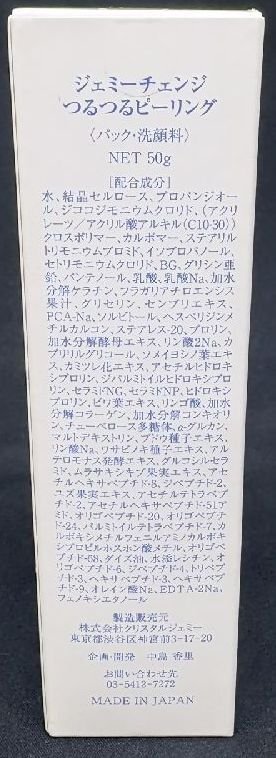 ジェミーチェンジ
つるつるピーリング
〈パック・洗顔料〉
NET 50g
[配合成分]
水、結晶セルロース、プロパンジオー
ル、ジココジモニウムクロリド、(アクリ
レーツ/アクリル酸アルキル(C10-30))
クロスポリマー、カルボマー、ステアリルト
リモニウムブロミド、イソプロパノール、
セトリモニウムクロリド、BG、グリシン亜
鉛、パンテノール、乳酸、乳酸Na、加水
分解ケラチン、フラガリアチロエンシス
果汁、グリセリン、センブリエキス、
PCA-Na、ソルビトール、ヘスペリジンメ
チルカルコン、ステアレス-20、プロリン、
加水分解酵母エキス、リン酸2Na、カ
プリリルグリコール、ソメイヨシノ葉エキ
ス、カミツレ花エキス、アセチルヒドロキ
シプロリン、ジパルミトイルヒドロキシプロ
リン、セラミドNG、セラミドNP、ヒドロキシ
プロリン、ビワ葉エキス、リンゴ酸、加水
分解コラーゲン、加水分解コンキオリ
ン、チューベロース多糖体、α-グルカン、
マルトデキストリン、ブドウ種子エキス、
リン酸Na、ワサビノキ種子エキス、アル
テロモナス発酵エキス、グルコシルセラ
ミド、ムラサキシキブ果実エキス、アセ
チルヘキサペプチド-8、ジペプチド-2、
ユズ果実エキス、アセチルテトラペプ
チド-2、アセチルヘキサペプチド-51ア
ミド、オリゴペプチド-20、オリゴペプチ
ド-24、パルミトイルテトラペプチド-7、カル
ボキシメチルフェニルアミノカルボキ
シプロピルホスホン酸メチル、オリゴペプ
チド-68、ダイズ油、水添レシチン、オ
リゴペプチド-6、ジペプチド-4、トリペプ
チド-3、ヘキサペプチド-3、ヘキサペプ
チド-9、オレイン酸Na、EDTA-2Na、
フェノキシエタノール
製造販売元
株式会社クリスタルジェミー
東京都渋谷区神宮前3-17-20
企画・開発 中島 香里
お問い合わせ先
03-5413-7272
MADE IN JAPAN